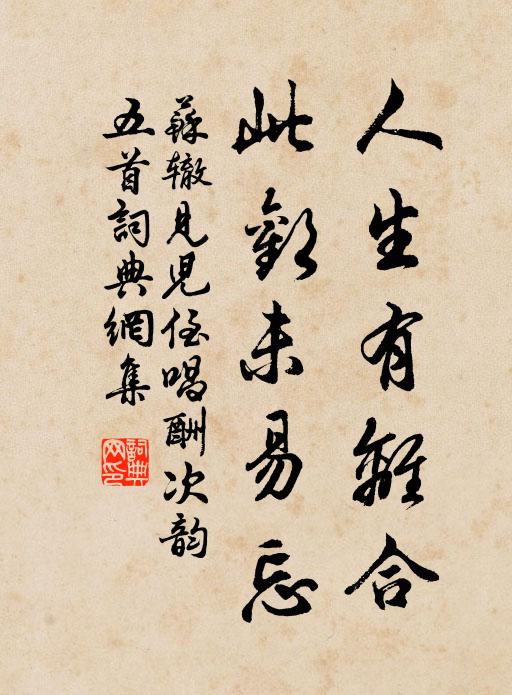 人生有離合
此歡未易忘
蘇辙見児侄唱酬次韵
五首詞典網集
詞典网印